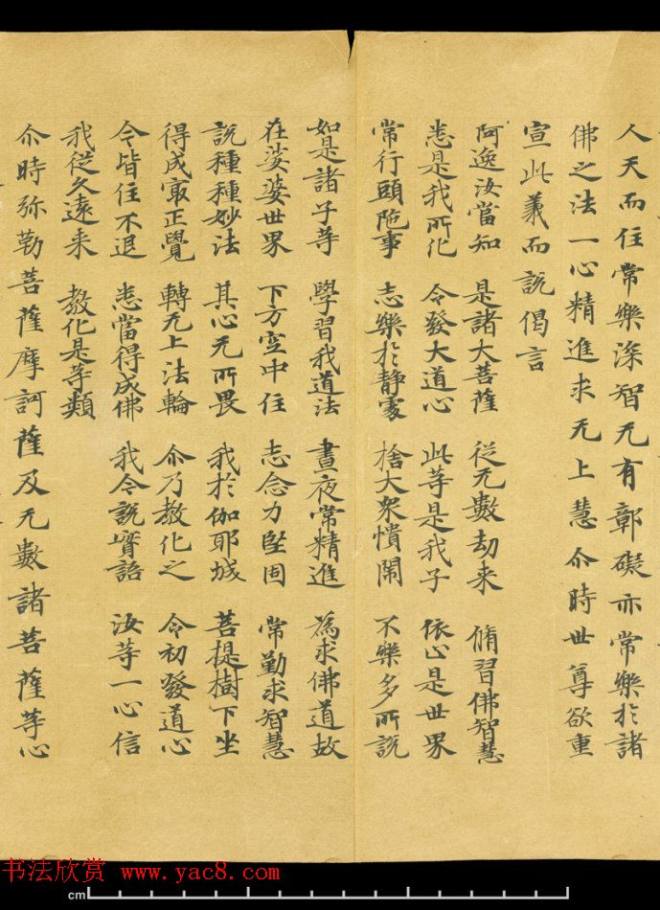 人天而住常樂深智无有鄣礙亦常樂於諸
佛之法一心精進求无上慧尒時世尊欲重
宣此義而說偈言
阿逸汝當知 是諸大菩薩 從无數劫来 脩習佛智慧
悉是我所化 令發大道心 此等是我子 依止是世界
常行頭陁事 志樂於静處 捨大衆憒閙 不樂多所説
如是諸子等 學習我道法 晝夜常精進 為求佛道故
在娑婆世界 下方空中住 志念力堅固 常勤求智慧
説種種妙法 其心无所畏 我於伽耶城 菩提樹下坐
得成冣正覺 轉无上法輪 尒乃教化之 令初發道心
今皆住不退 悉當得成佛 我今説實語 汝等一心信
我従久遠来 教化是等類
尒時弥勒菩薩摩訶薩及无數諸菩薩等心
书法欣赏 www.yac8.com
cm